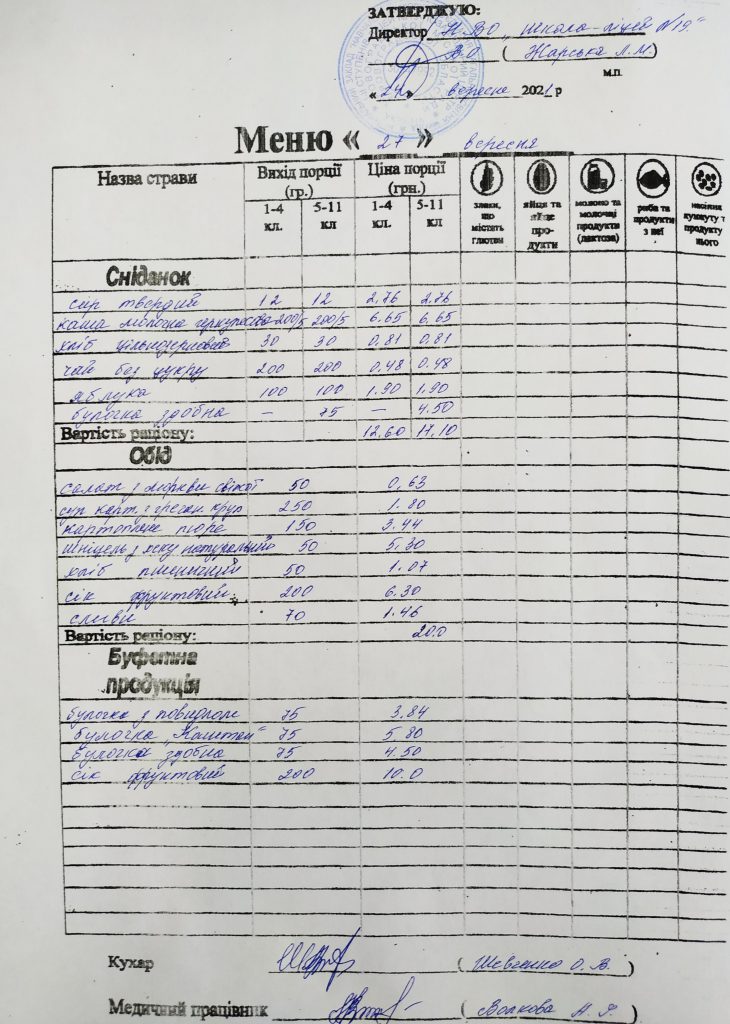 ЗАТВЕРДЖУЮ:
Директор НВО „Школа-ліцей №19"
ВО ( Жарська Л.М.)
м.п.
«24» вересня 2021 р
Меню « 27 » вересня
Назва страви Вихід порції (гр.) Ціна порції (грн.) злаки, що містять глютен яйця та яйце продукти молоко та молочні продукти (лактоза) риба та продукти з неї насіння кунжуту т продукту нього
1-4 кл. 5-11 кл 1-4 кл. 5-11 кл
Сніданок
сир твердий 12 12 2,76 2,76
каша молочна геркулесова 200/5 200/5 6,65 6,65
хліб цільнозерновий 30 30 0,81 0,81
чай без цукру 200 200 0,48 0.48
яблука 100 100 1.90 1,90
булочка здобна — 75 — 4.50
Вартість раціону: 12,60 17,10
Обід
салат з моркви свіжої 50 0,63
суп карт. з гречан. круп 250 1.80
картопляне пюре 150 3,44
шніцель з яку натуральний 50 5,30
хліб пшеничний 50 1.07
сік фруктовий 200 6.30
сливи 70 1.46
Вартість раціону: 20.0
Буфетна
продукція
булочка з повидлом 75 3.84
булочка „Каштан" 75 5.80
булочка здобна 75 4.50
сік фруктовий 200 10.0
Кухар ( Шевченко О.В. )
Медичний працівник ( Волкова )